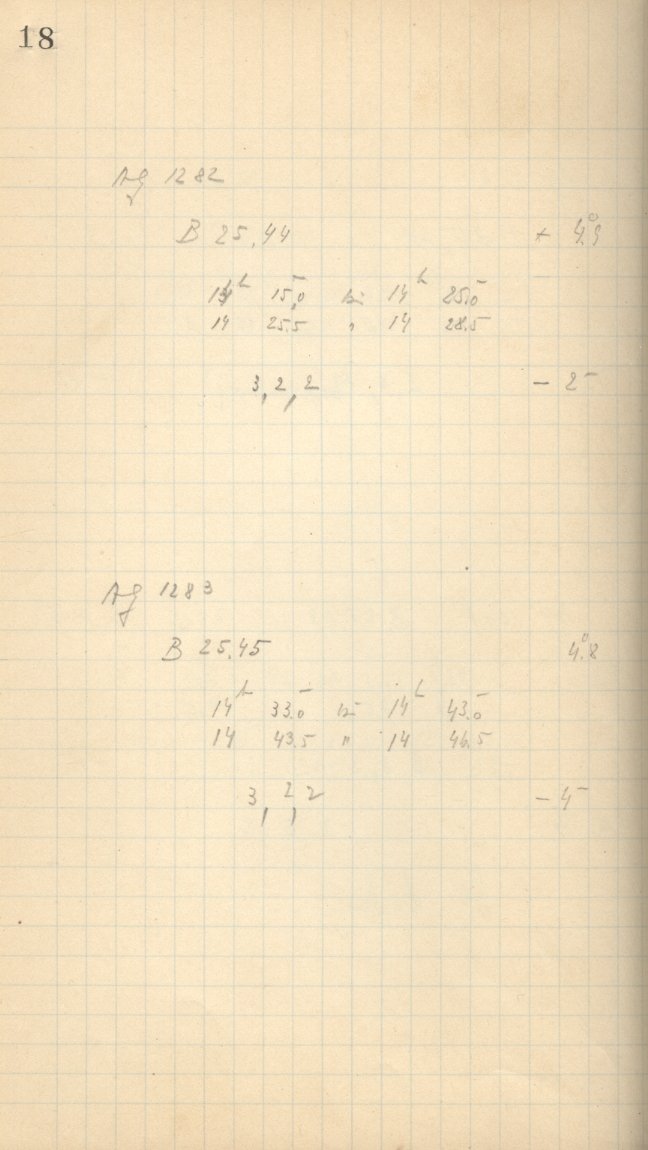 18
Ag 1282
B 25,44 + 4°.9
14h 15,0m bis 14h 25.0m
14 25.5 " 14 28.5
3, 2, 2 - 2m
Ag 1283
B 25.45 4°.8
14h 33.0m bis 14h 43.0m
14 43.5 " 14 46.5
3, 2, 2 - 4m